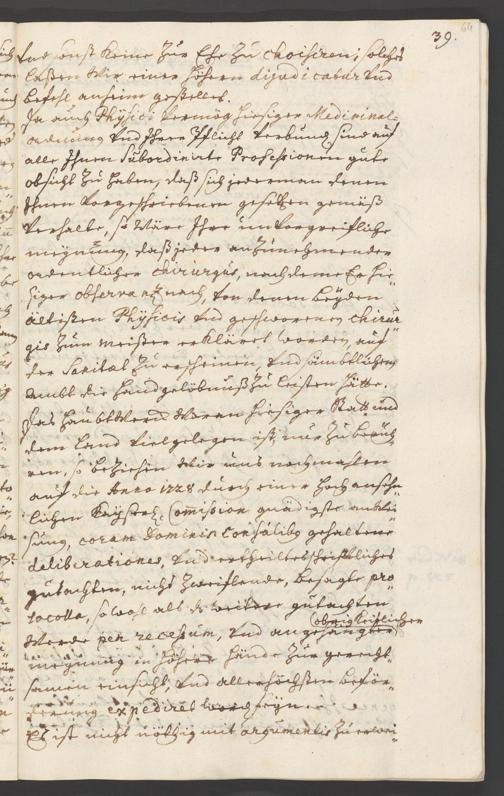 39.
und sonst keine zur Ehe zu choisiren; solches
laßen wir einer höhern dijudicatur und
befehl anheim gestellet.
Da auch Physici vermög hiesiger Medicinal-
ordnung und Ihrer Pflicht verbunden sind auf
alle Ihnen Subordinirte Professionen gute
obsicht zu haben, daß sich jederman denen
Ihnen vorgeschriebenen gesätzen gemäß
verhalte, so wäre Ihre unvorgreifliche
meynung, daß jeder anzunehmender
ordentlicher Chirurgus, nachdeme Er hie-
siger observanz nach, von denen beyden
ältisten Physicis und geschworenen Chirur-
gis zum meister erkläret worden, auf
der Sanitat zu erscheinen und sambtlichem
ambt die handgelöbnuß zu leisten hätte.
Das haubtwerck woran hiesiger Statt und
dem Land viel gelegen ist, nur zu berüh-
ren, so beziehen wir uns nochmahlen
auf die Anno 1728 durch einer hoch ansehn-
lichen Kayserl. Comission gnädigste anwei-
sung, coram Dominis Consulibg gehaltene
deliberationes, und ertheiltes schriftliches
gutachten, nicht zweiflende, besagte pro-
tocolla, sowol als de weitere gutachten
werde per recessum, und angehängter obrigkeitlicher
meynung in höhere hände zur gerecht-
samen einsicht, und allerhöchsten beför-
derung expedirt worden seyn.
Es ist nicht nöthig mit argumentis zu erwei-